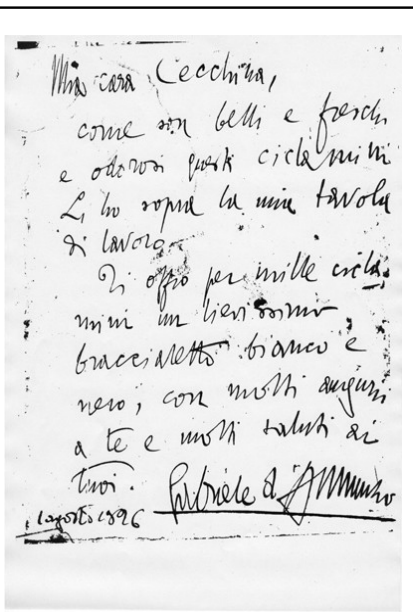 Mia cara Cecchina,
come son belli e freschi
e odorosi questi ciclamini
Li ho sopra la mia tavola
di lavoro.
Ti offro per mille cicla-
mini un lievissimo
braccialetto bianco e
nero, con molti auguri
a te e molti saluti ai
tuoi.
Gabriele d'Annunzio
1 agosto 1896